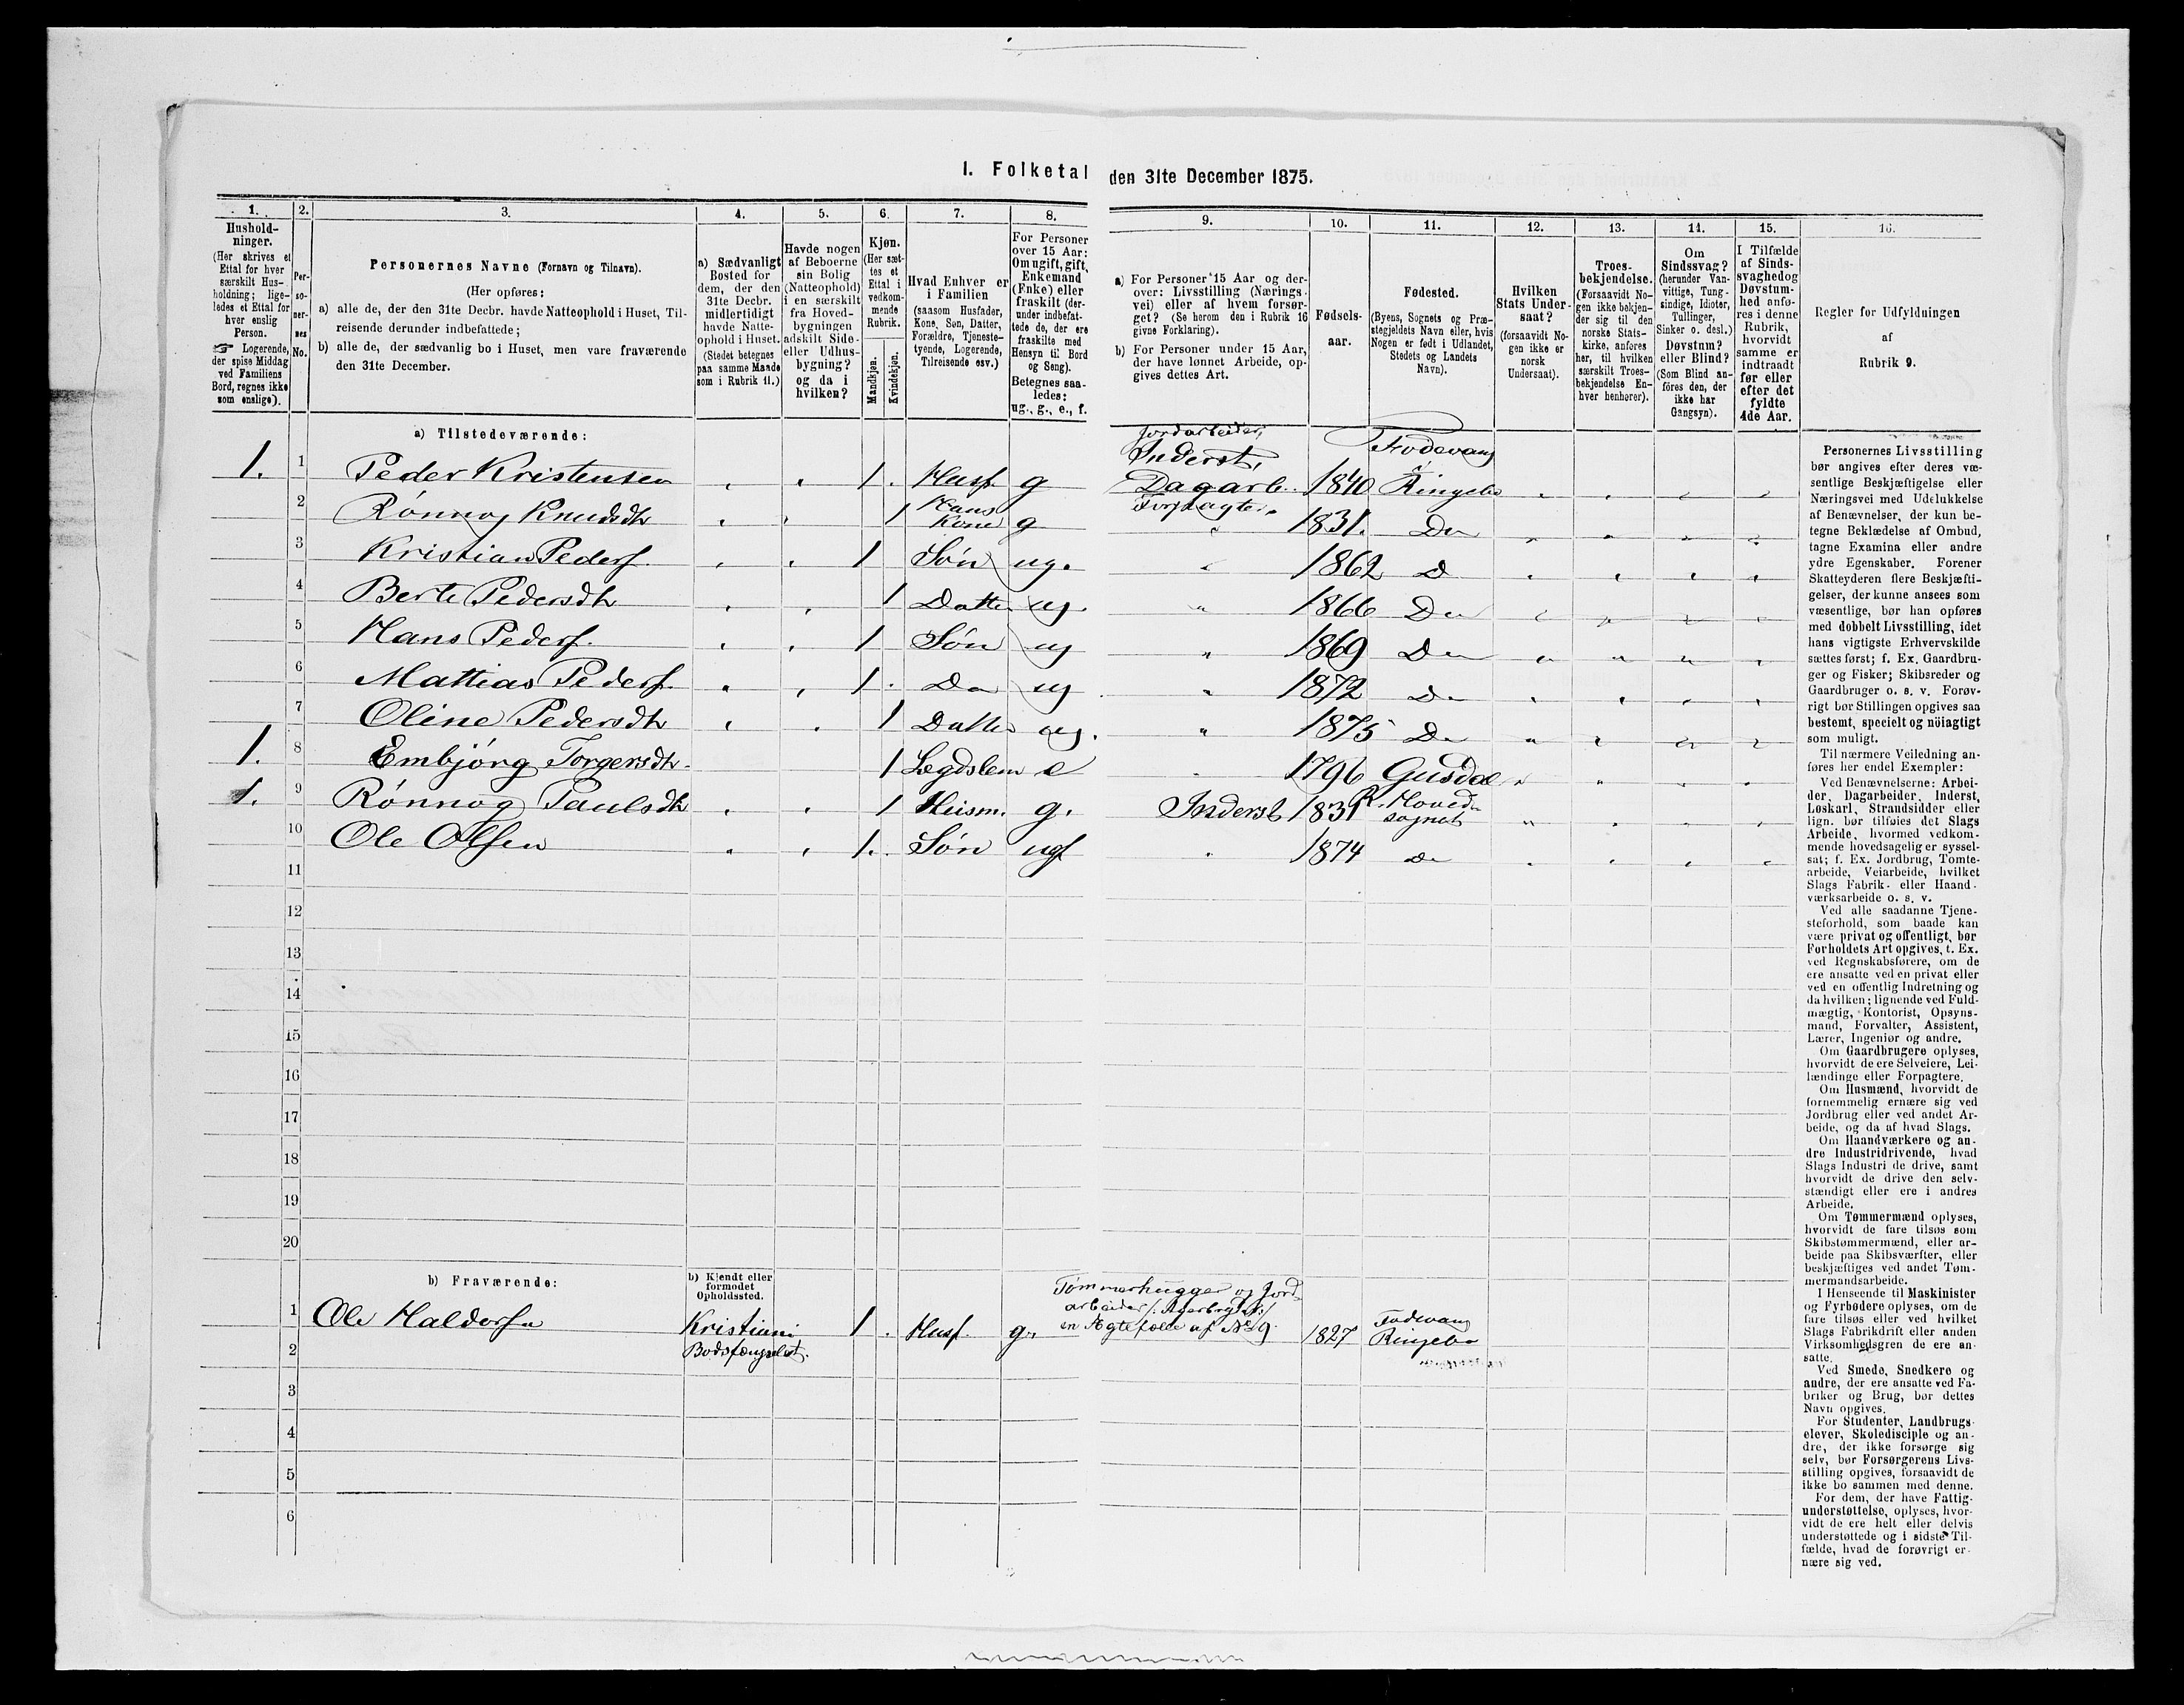 I. Folketal den 31te December 1875.
1. 2. 3. 4. 5. 6. 7. 8. 9. 10. 11. 12. 13. 14. 15. 16.
Hushold-
ninger.
(Her skrives et
Ettal for hver
særskilt Hus-
holdning; lige-
ledes et Ettal for
hver enslig
Person.
☞ Logerende,
der spise Middag
ved Familiens
Bord, regnes ikke
som enslige).
Per-
so-
ner-
nes
No.
Personernes Navne (Fornavn og Tilnavn).
(Her opføres:
a) alle de, der den 31te Decbr. havde Natteophold i Huset, Til-
reisende derunder indbefattede;
b) alle de, der sædvanlig bo i Huset, men vare fraværende
den 31te December.
a) Sædvanligt
Bosted for
dem, der den
31te Decbr.
midlertidigt
havde Natte-
ophold i Huset.
(Stedet betegnes
paa samme Maade
som i Rubrik 11.)
Havde nogen
af Beboerne
sin Bolig
(Natteophold)
i en særskilt
fra Hoved-
bygningen
adskilt Side-
eller Udhus-
bygning?
og da i
hvilken?
Kjøn.
(Her sæt-
tes et
Ettal i
vedkom-
mende
Rubrik.
Mandkjøn.
Kvindekjøn.
Hvad Enhver er
i Familien
(saasom Husfader,
Kone, Søn, Datter,
Forældre, Tjeneste-
tyende, Logerende,
Tilreisende osv.)
For Personer
over 15 Aar:
Om ugift, gift,
Enkemand
(Enke) eller
fraskilt (der-
under indbefat-
tede de, der ere
fraskilte med
Hensyn til Bord
og Seng).
Betegnes saa-
ledes:
ug., g., e., f.
a) For Personer 15 Aar og der-
over: Livsstilling (Nærings-
vei) eller af hvem forsør-
get? (Se herom den i Rubrik 16
givne Forklaring).
b) For Personer under 15 Aar,
der have lønnet Arbeide, op-
gives dettes Art.
Fødsels-
aar.
Fødested.
(Byens, Sognets og Præ-
stegjeldets Navn eller, hvis
Nogen er født i Udlandet,
Stedets og Landets
Navn).
Hvilken
Stats Under-
saat?
(forsaavidt No-
gen ikke er
norsk
Undersaat).
Troes-
bekjendelse.
(Forsaavidt No-
gen ikke bekjen-
der sig til den
norske Stats-
kirke, anføres
her, til hvilken
særskilt Troes-
bekjendelse En-
hver henhører).
Om
Sindssvag?
(herunder Van-
vittige, Tung-
sindige, Idioter,
Tullinger,
Sinker o. desl.)
Døvstum?
eller Blind?
(Som Blind an-
föres den, der
ikke har
Gangsyn).
I Tilfælde
af Sinds-
svaghed og
Døvstum-
hed anfø-
res i denne
Rubrik,
hvorvidt
samme er
indtraadt
før eller
efter det
fyldte
4de Aar.
Regler for Udfyldningen
af
Rubrik 9.
a) Tilstedeværende:
Jordarbeider,
1. 1 Peder Kristensen 1. Husf. g Inderst, Dagarb. 1840 Fodevang, Ringebo
2 Rønnog Knudsdtr 1 Hans Kone g Forpagter. 1831. Do
3 Kristian Peders. 1 Søn ug. 1862 D
4 Berte Pedersdtr 1 Datter ug. 1866 Do
5 Hans Peders. 1 Søn ug 1869 Do
6 Mattias Peders. 1. Do ug 1872 Do
7 Oline Pedersdtr 1 Datter ug. 1875 Do
1. 8 Embjörg Torgersdtr. 1 Lægdslem e 1796 Gusdal
1. 9 Rønnog Paulsdtr 1 Husm. g. Inderst 1831 R. Hovedsognet
10 Ole Olsen 1. Søn ug 1874 Do
11
12
13
14
15
16
17
18
19
20
b) Fraværende:
b) Kjendt eller
formodet
Opholdssted.
Tømmerhugger og Jord-
arbeider
1 Ole Haldorsen Kristiani 1. Husf. g. en Ægtefolk af No 9. 1827 Fodevang Ringebo
2 Bodsfængslet.
3
4
5
6
Personernes Livsstilling
bør angives efter deres væ-
sentlige Beskjæftigelse eller
Næringsvei med Udelukkelse
af Benævnelser, der kun be-
tegne Beklædelse af Ombud,
tagne Examina eller andre
ydre Egenskaber. Forener
Skatteyderen flere Beskjæfti-
gelser, der kunne ansees som
væsentlige, bør han opføres
med dobbelt Livsstilling, idet
hans vigtigste Erhvervskilde
sættes først; f. Ex. Gaardbru-
ger og Fisker; Skibsreder og
Gaardbruger o. s. v. Forøv-
rigt bør Stillingen opgives saa
bestemt, specielt og nöiagtigt
som muligt.
Til nærmere Veiledning an-
føres her endel Exempler:
Ved Benævnelserne: Arbei-
der, Dagarbeider, Inderst,
Løskarl, Strandsidder eller
lign. bør tilføies det Slags
Arbeide, hvormed vedkom-
mende hovedsagelig er syssel-
sat; f. Ex. Jordbrug, Tomte-
arbeide, Veiarbeide, hvilket
Slags Fabrik- eller Haand-
værksarbeide o. s. v.
Ved alle saadanne Tjene-
steforhold, som baade kan
være privat og offentligt, bør
Forholdets Art opgives, t. Ex.
ved Regnskabsførere, om de
ere ansatte ved en privat eller
ved en offentlig Indretning og
da hvilken; lignende ved Fuld-
mægtig, Kontorist, Opsyns-
mand, Forvalter, Assistent,
Lærer, Ingeniør og andre.
Om Gaardbrugere oplyses,
hvorvidt de ere Selveiere, Lei-
lændinge eller Forpagtere.
Om Husmænd, hvorvidt de
fornemmelig ernære sig ved
Jordbrug eller ved andet Ar-
beide, og da af hvad Slags.
Om Haandværkere og an-
dre Industridrivende, hvad
Slags Industri de drive, samt
hvorvidt de drive den selv-
stændigt eller ere i andres
Arbeide.
Om Tømmermænd oplyses,
hvorvidt de fare tilsøs som
Skibstømmermænd, eller ar-
beide paa Skibsværfter, eller
beskjæftiges ved andet Tøm-
mermandsarbeide.
I Henseende til Maskinister
og Fyrbødere oplyses, om de
fare tilsøs eller ved hvilket
Slags Fabrikdrift eller anden
Virksomhedsgren de ere an-
satte.
Ved Smede, Snedkere og
andre, der ere ansatte ved Fa-
briker og Brug, bør dettes
Navn opgives.
For Studenter, Landbrugs-
elever, Skoledisciple og an-
dre, der ikke forsørge sig
selv, bør Forsørgerens Livs-
stilling opgives, forsaavidt de
ikke bo sammen med denne.
For dem, der have Fattig-
understøttelse, oplyses, hvor-
vidt de ere helt eller delvis
understøttede og i sidste Til-
fælde, hvad de forøvrigt er-
nære sig ved.